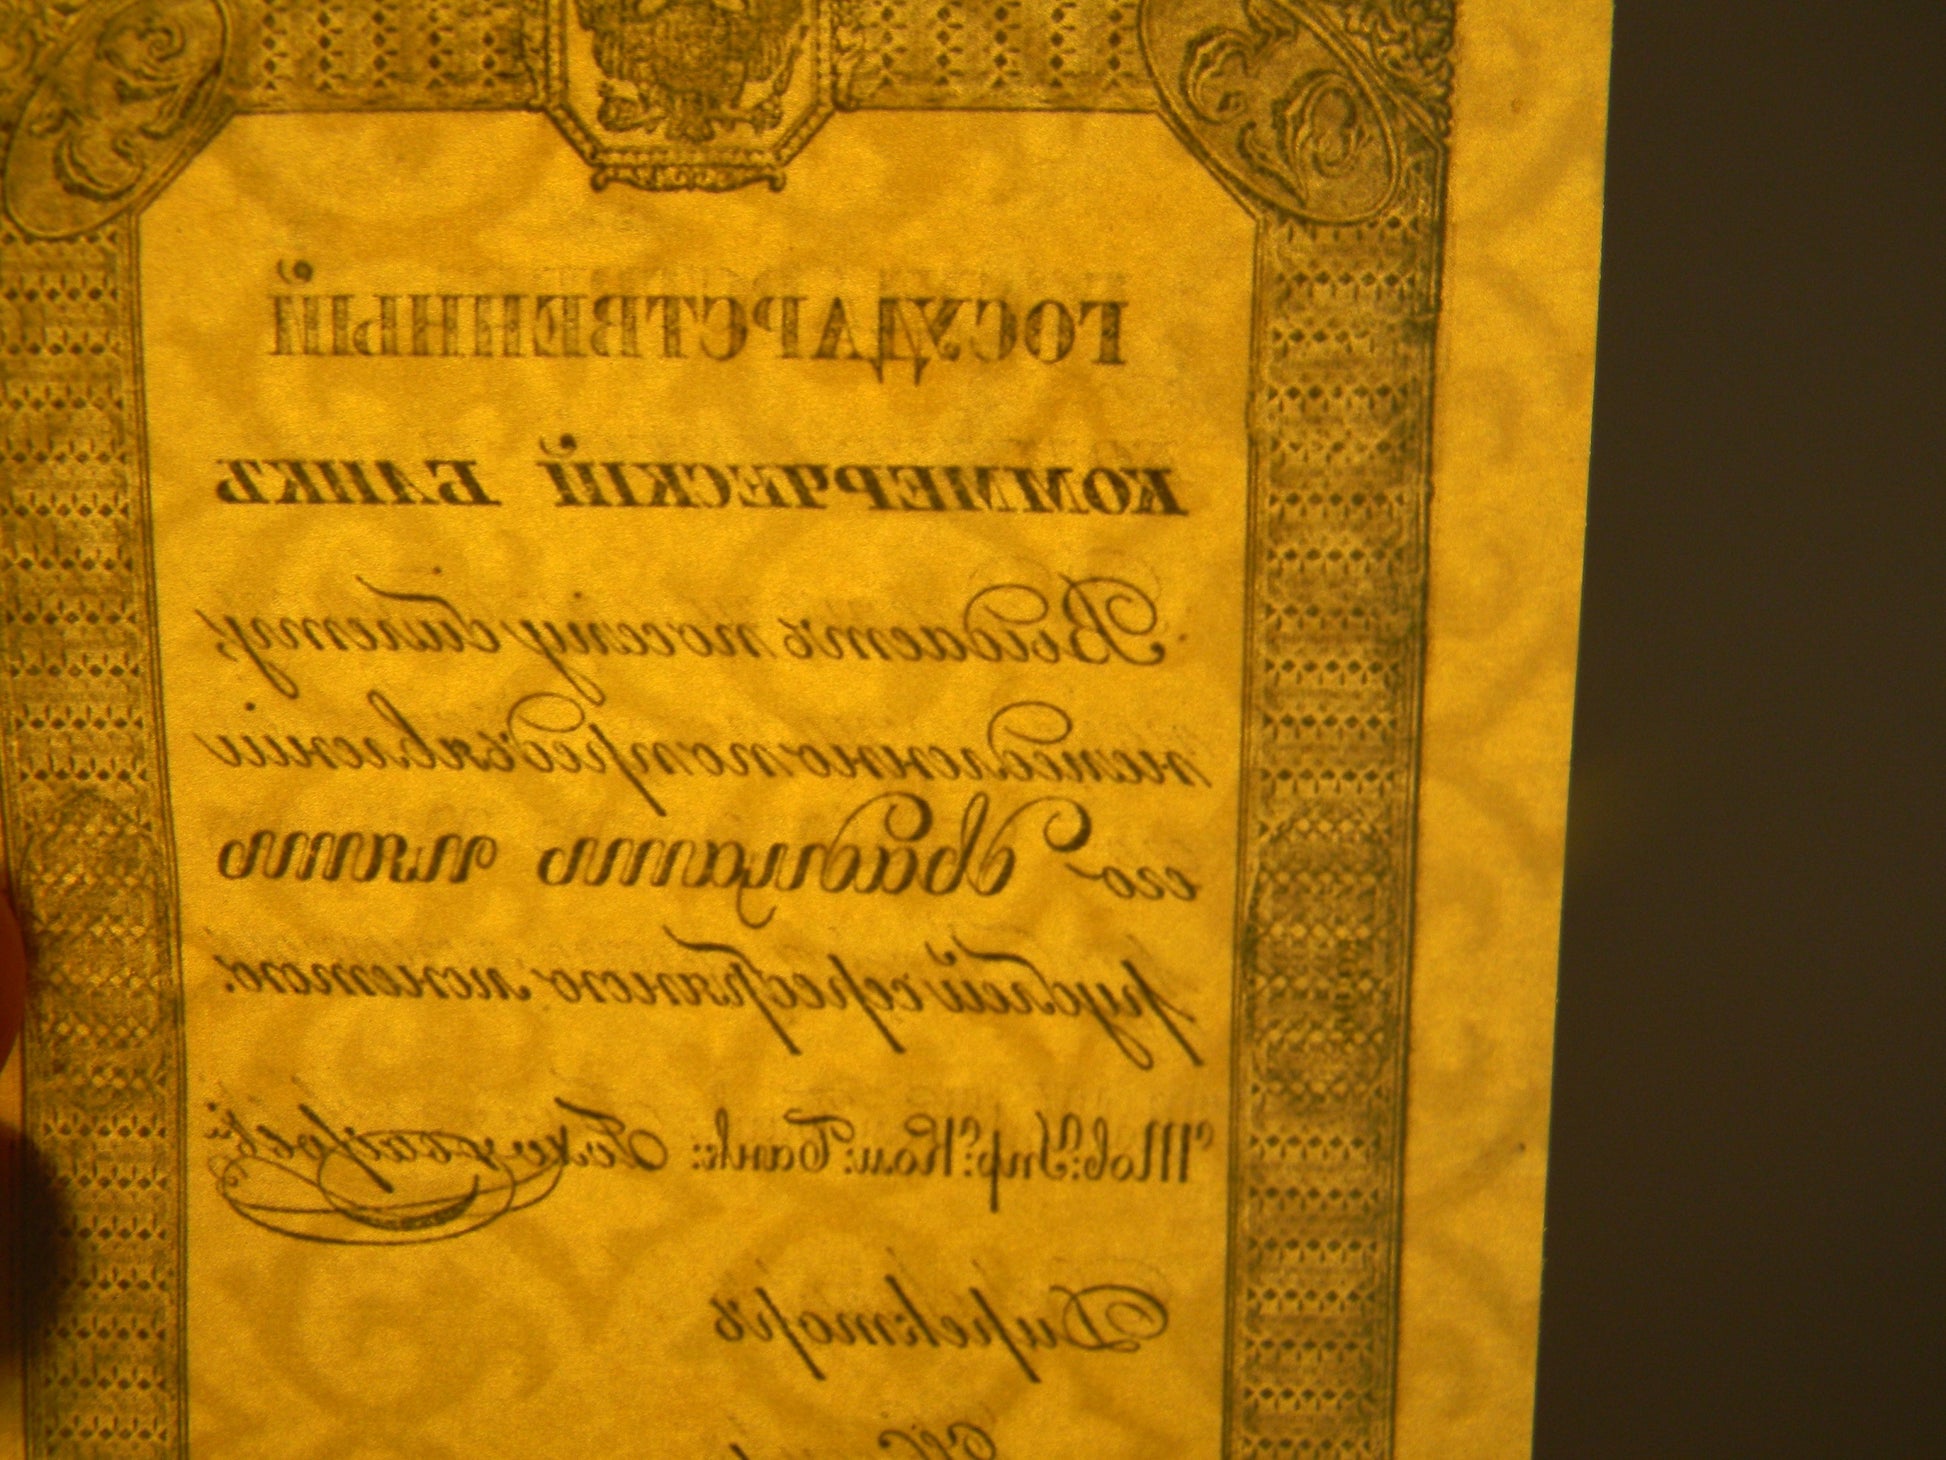 ГОСУДАРСТВЕННЫЙ
КОММЕРЧЕСКІЙ БАНКЪ
Выдаетъ по сему билету,
немедленно по предъявленіи
его двадцать пять
рублей серебряною монетою.
Тов: Упр: Ком: Банк:
Директоръ